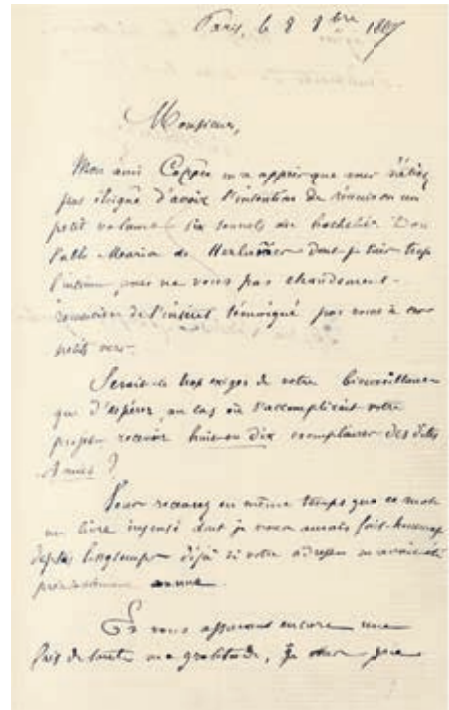 Paris, le 8 8bre 1867
Monsieur,
Mon ami Coppée m'a appris que vous n'étiez
pas éloigné d'avoir l'intention de réunir en un
petit volume six sonnets du bachelier Don
Pablo-Maria de dont je suis trop
l'intime pour ne vous pas chaudement
remercier de l'intérêt témoigné par vous à ces
petits vers.
Serait-ce trop exiger de votre bienveillance
que d'espérer, au cas où s'accomplirait votre
projet, recevoir huit ou dix exemplaires des dites
Amies ?
Vous recevrez en même temps que ce mot
un livre insensé dont je vous aurais fait hommage
depuis longtemps déjà si votre adresse m'avait été
précisément connue.
En vous assurant encore une
fois de toute ma gratitude, je vous prie